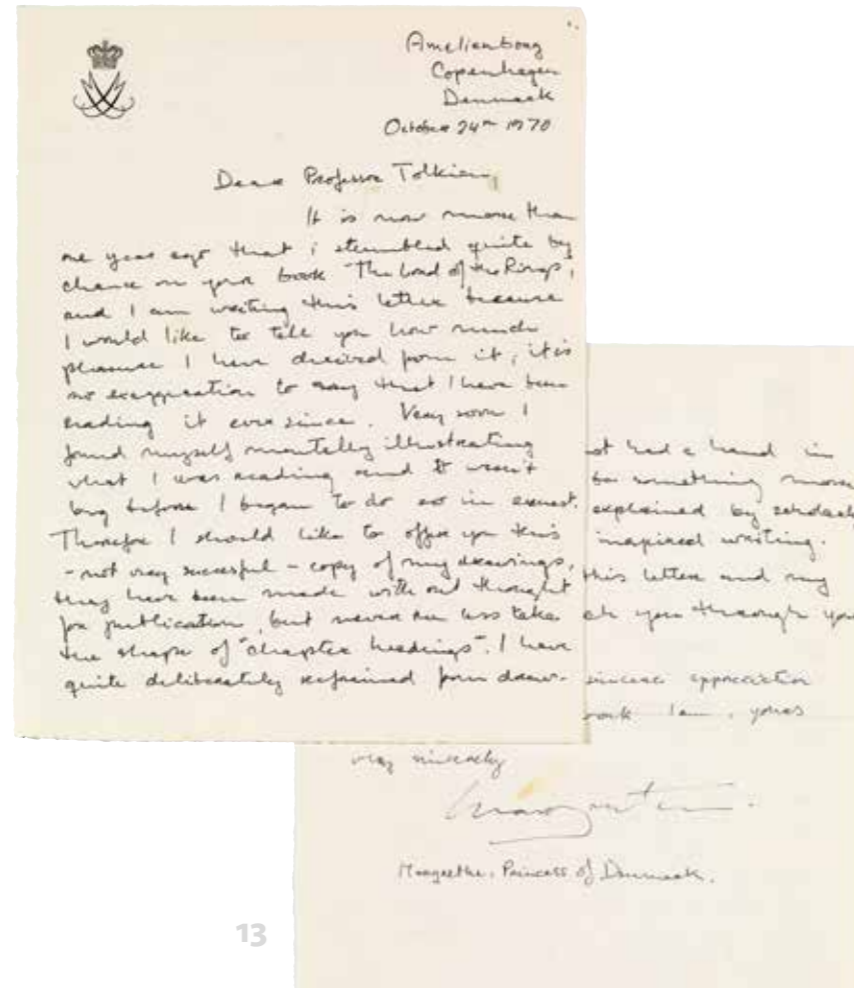 Amalienborg
Copenhagen
Denmark
October 24th 1970
Dear Professor Tolkien,
It is now more than
one year ago that i stumbled quite by
chance on your book "The Lord of the Rings",
and I am writing this letter because
I would like to tell you how much
pleasure I have derived from it, it is
no exaggeration to say that I have been
reading it ever since. Very soon I
found myself mentally illustrating
what I was reading and it wasn't
long before I began to do so in earnest.
Therefore I should like to offer you this
- not very succesful - copy of my drawings,
they have been made without thought
for publication, but never the less take
the shape of "chapter headings". I have
quite deliberately refrained from draw-
not had a hand in
be something more
explained by
inspired writing.
this letter and my
you through you
sincere appreciation
work I am, yours
very sincerely
Margrethe.
Margrethe, Princess of Denmark.
13